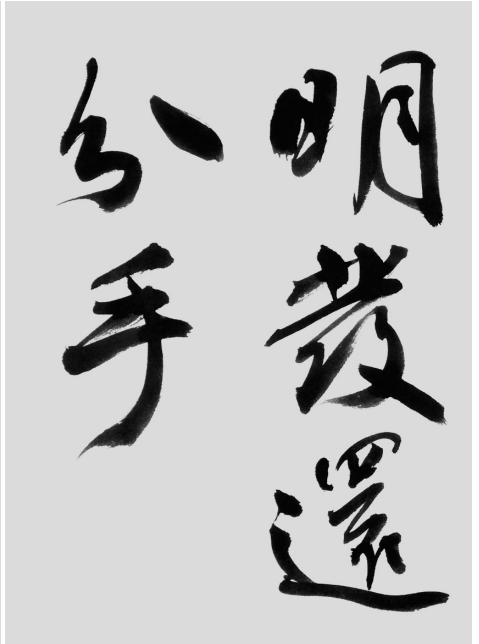 明發還
分手